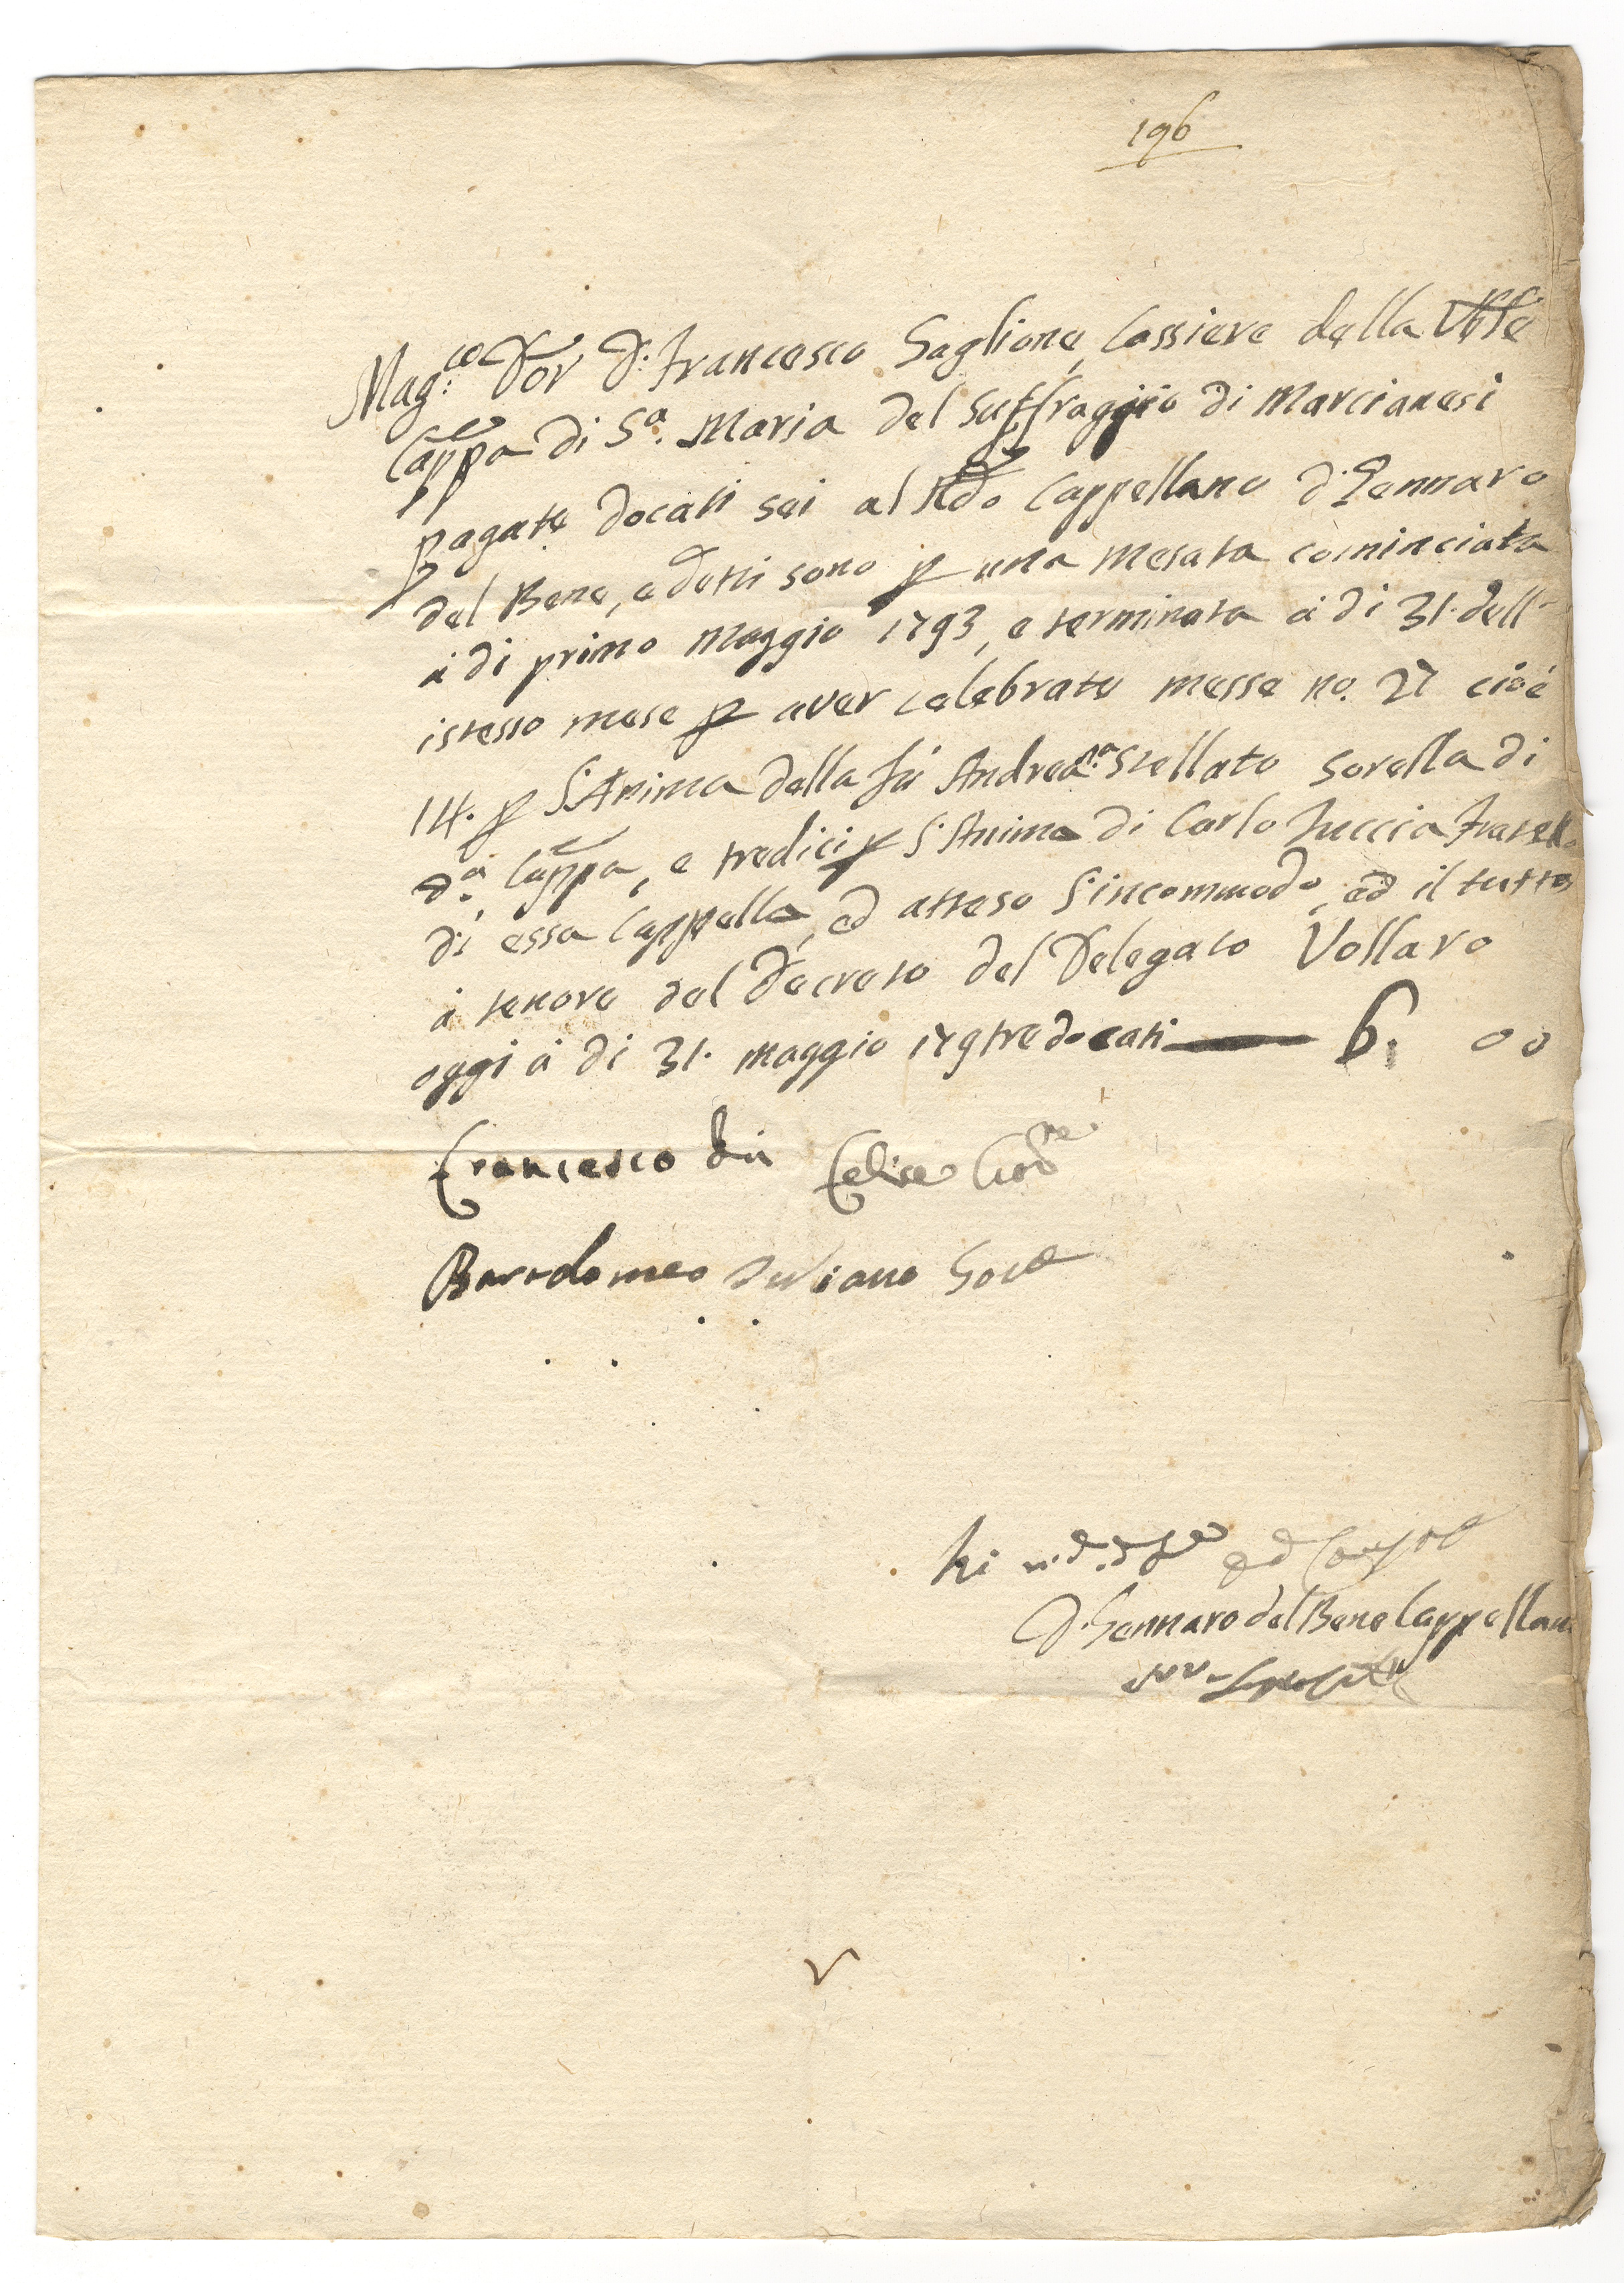 196
Mag:co Dor D: Francesco Saglione, Cassiere della Vble
Cappa di Sa. Maria del Suffraggio di Marcianesi
pagate docati sei al Rdo Cappellano D: Gennaro
del Bene, e detti sono p una mesata cominciata
à di primo Maggio 1793, e terminata à di 31. dell'
istesso mese p aver celebrate messe no. 27 cioè
14. p l'Anima della fù Andreana Stellato sorella di
da. Cappa, e tredici p l'Anima di Carlo Zuccia Fratello
di essa Cappella, ed atteso l'incommodo, ed il tutto
à tenore del Decreto del Delegato Vollaro
oggi à di 31. maggio 179tre docati — 6. 00
Francesco di Felice
Bartolomeo
D. Gennaro del Bene Cappellano